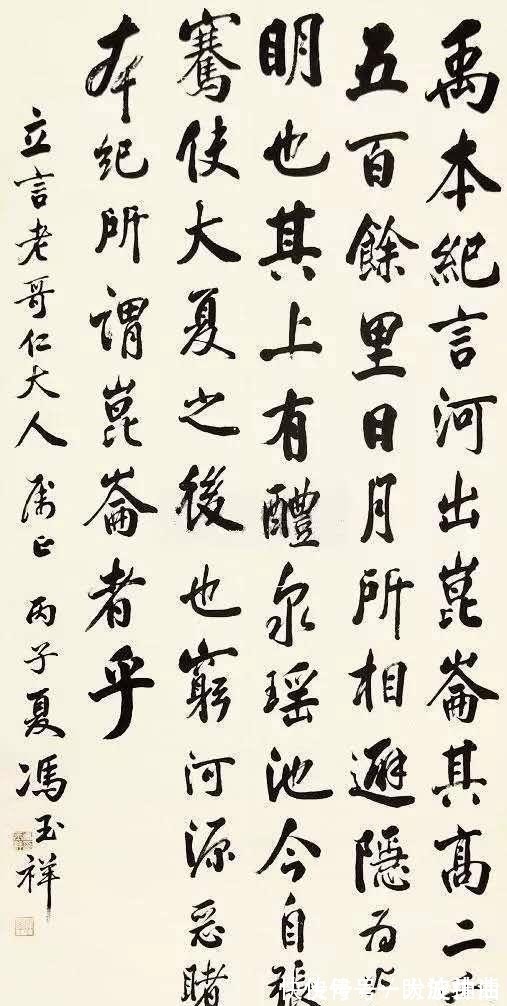 禹本紀言河出崑崙其高二
五百餘里日月所相避隱為光
明也其上有醴泉瑶池今自張
騫使大夏之後也窮河源惡睹
本紀所謂崑崙者乎
立言老哥仁大人 属正 丙子夏 馮玉祥